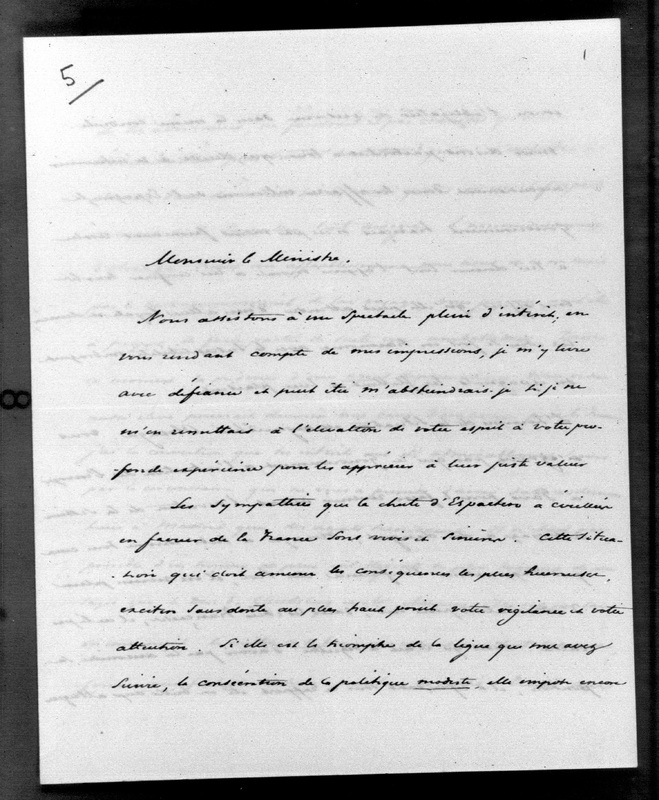 5/
1
Monsieur le Ministre,
Nous assistons à un spectacle plein d'intérêt, en
vous rendant compte de mes impressions, je m'y livre
avec défiance et peut être m'abstiendrais-je si je ne
m'en remettais à l'élévation de votre esprit à votre pro-
fonde expérience pour les apprécier à leur juste valeur
Les sympathies que la chute d'Espartero a éveillées
en faveur de la France sont vives et sincères. Cette situa-
tion qui doit amener les conséquences les plus heureuses,
excitera sans doute au plus haut point votre vigilance et votre
attention. Si elle est le triomphe de la ligne que vous avez
suivie, la consécration de la politique modeste, elle impose encore
8